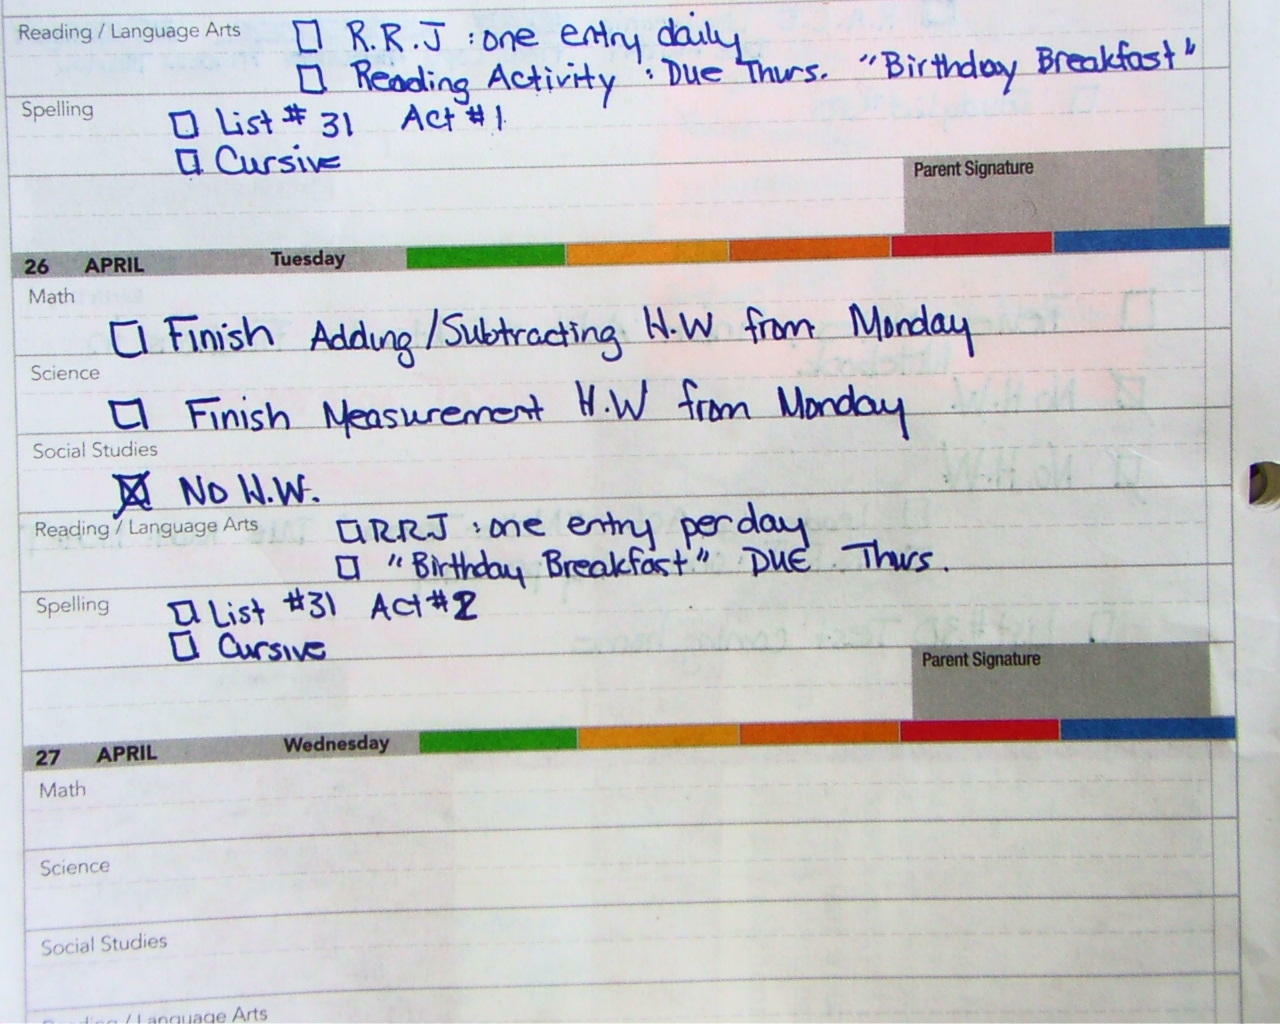 Reading / Language Arts
R.R.J : one entry daily
Reading Activity : Due Thurs. "Birthday Breakfast"
Spelling
List # 31 Act # 1
Cursive
Parent Signature
26 APRIL Tuesday
Math
Finish Adding/Subtracting H.W from Monday
Science
Finish Measurement H.W from Monday
Social Studies
No H.W.
Reading / Language Arts
RRJ : one entry per day
"Birthday Breakfast" DUE Thurs.
Spelling
List #31 Act #2
Cursive
Parent Signature
27 APRIL Wednesday
Math
Science
Social Studies
Reading / Language Arts